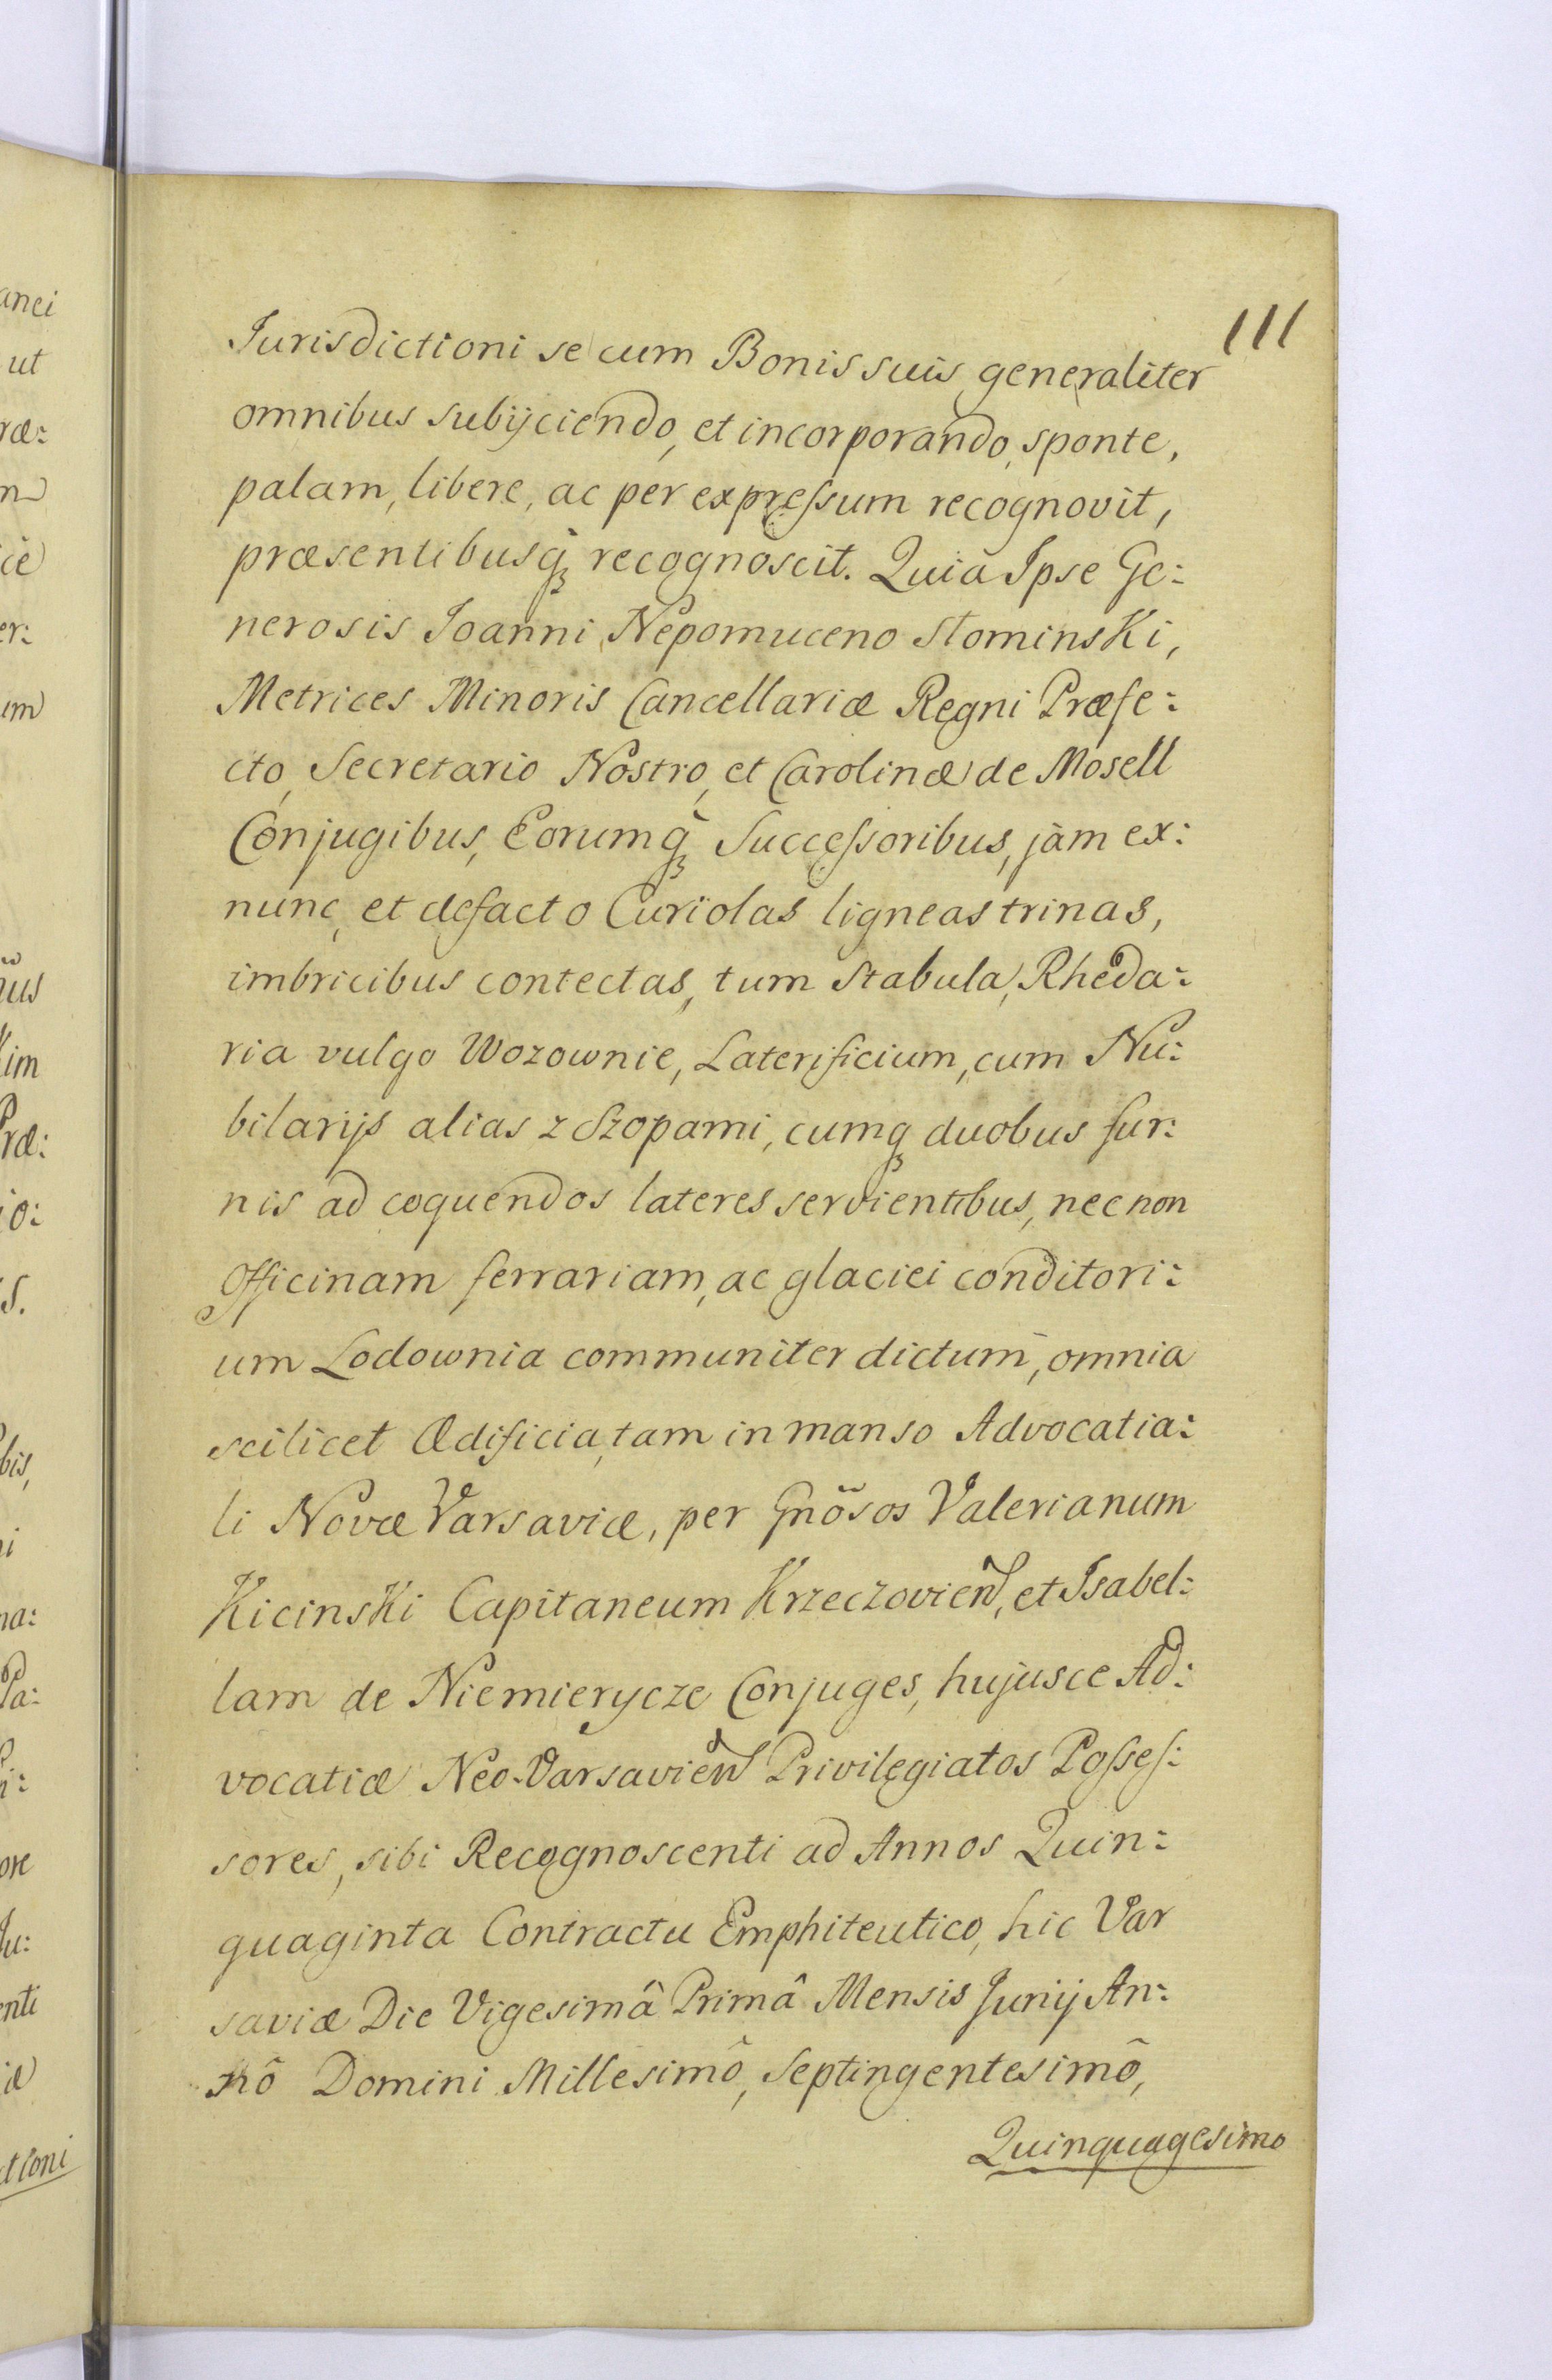 111
Jurisdictioni se cum Bonis suis generaliter
omnibus subijciendo, et incorporando, sponte,
palam, libere, ac per expreſsum recognovit,
præsentibusq́ꝫ recognoscit. Quia Ipse Ge:
nerosis Joanni Nepomuceno Słominski,
Metrices Minoris Cancellariæ Regni Præfe:
cto, Secretario Nostro, et Carolinæ de Mosell
Conjugibus, Eorumq́ꝫ Succeſsoribus, jàm ex:
nunc, et defacto Curiolas ligneas trinas,
imbricibus contectas, tum Stabula, Rheda:
ria vulgo Wozownie, Laterificium, cum Nu:
bilarijs alias z Szopami, cumqꝫ duobus fur:
nis ad coquendos lateres servientibus, nec non
Officinam ferrariam, ac glaciei conditori:
um Lodownia communiter dictum, omnia
scilicet Ædificia, tam in manso Advocatia:
li Novæ Varsaviæ, per Gnõsos Valerianum
Kicinski Capitaneum Krzeczovien̄, et Isabel:
lam de Niemierycze Conjuges, hujusce Ad:
vocatiæ Neo-Varsavien̄ Privilegiatos Poſseſ:
sores, sibi Recognoscenti ad Annos Quin:
quaginta Contractu Emphiteutico, hic Var
saviæ Die Vigesimâ Primâ Mensis Junij An:
nô Domini Millesimô, Septingentesimô,
Quinquagesimo